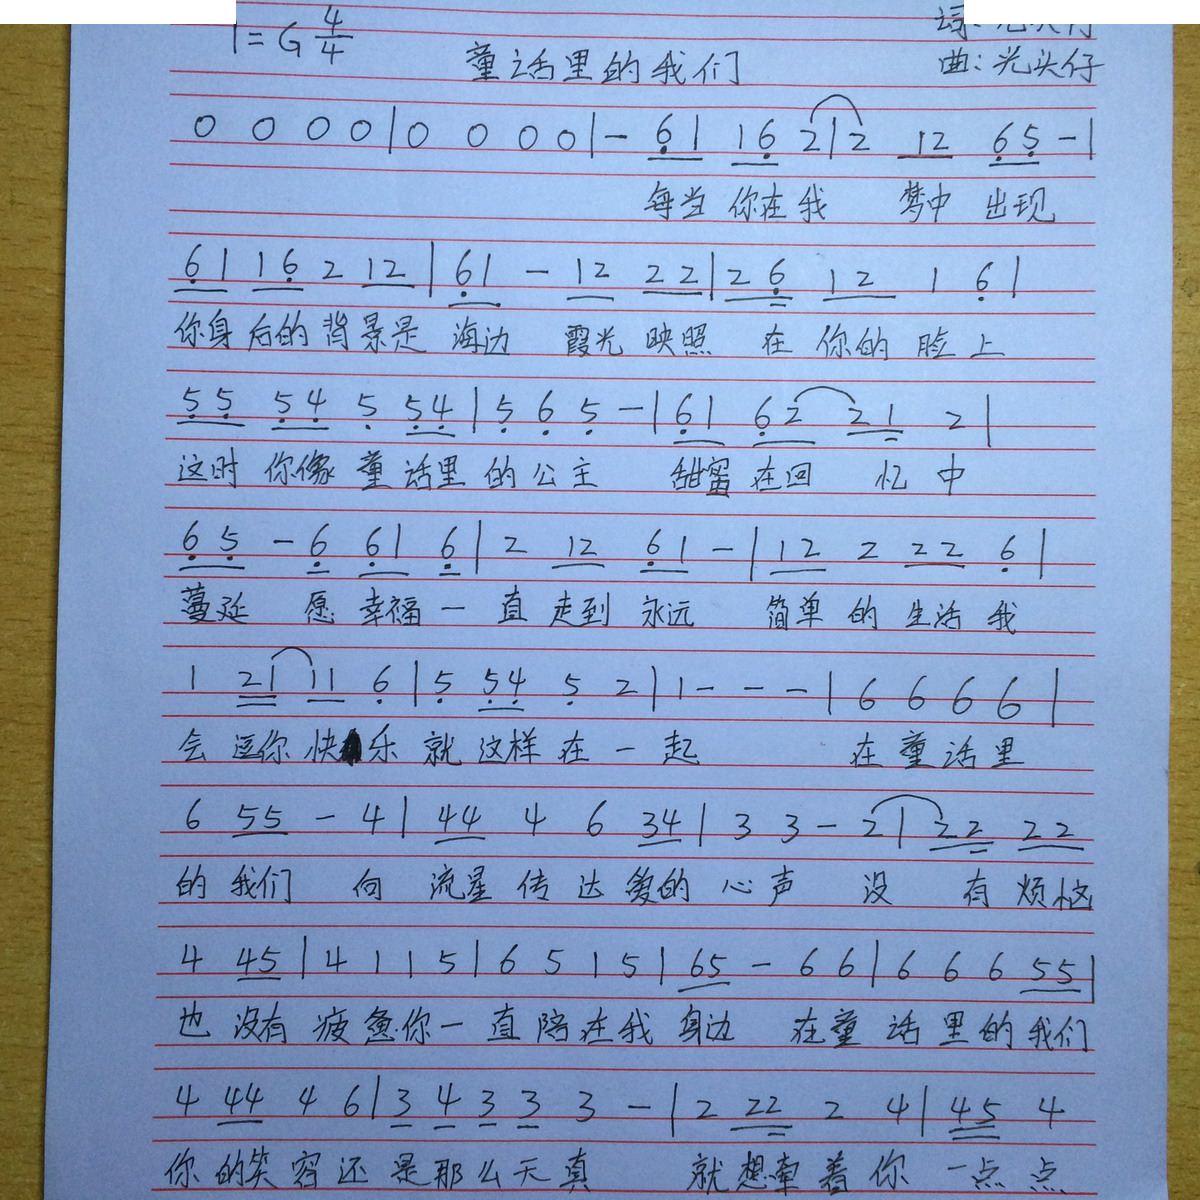 1=G 4/4
童话里的我们
曲:光头仔
0 0 0 0|0 0 0 0|- 61 16 2|2 12 65 -|
每当 你在我 梦中 出现
61 16 2 12|61 - 12 22|26 12 1 6|
你身 后的 背景是 海边 霞光 映照 在 你的 脸上
55 54 5 54|5 6 5 -|61 62 21 2|
这时 你像 童 话里 的 公主 甜蜜 在回 忆 中
65 - 6 61 6|2 12 61 -|12 2 22 6|
蔓延 愿 幸福 一 直 走到 永远 简单 的 生活 我
1 21 11 6|5 54 5 2|1 - - -|6 6 6 6|
会 逗你 快乐 就 这样 在 一 起 在 童 话 里
6 55 - 4|44 4 6 34|3 3 - 2|22 22
的 我们 向 流星 传 达 爱的 心 声 没 有 烦恼
4 45|4 1 1 5|6 5 1 5|65 - 6 6|6 6 6 55|
也 没有 疲惫你一 直陪在我 身边 在童 话 里 的 我们
4 44 4 6|3 4 3 3 3 -|2 22 2 4|45 4
你 的笑 容 还 是 那 么 天 真 就 想牵 着 你 一点 点